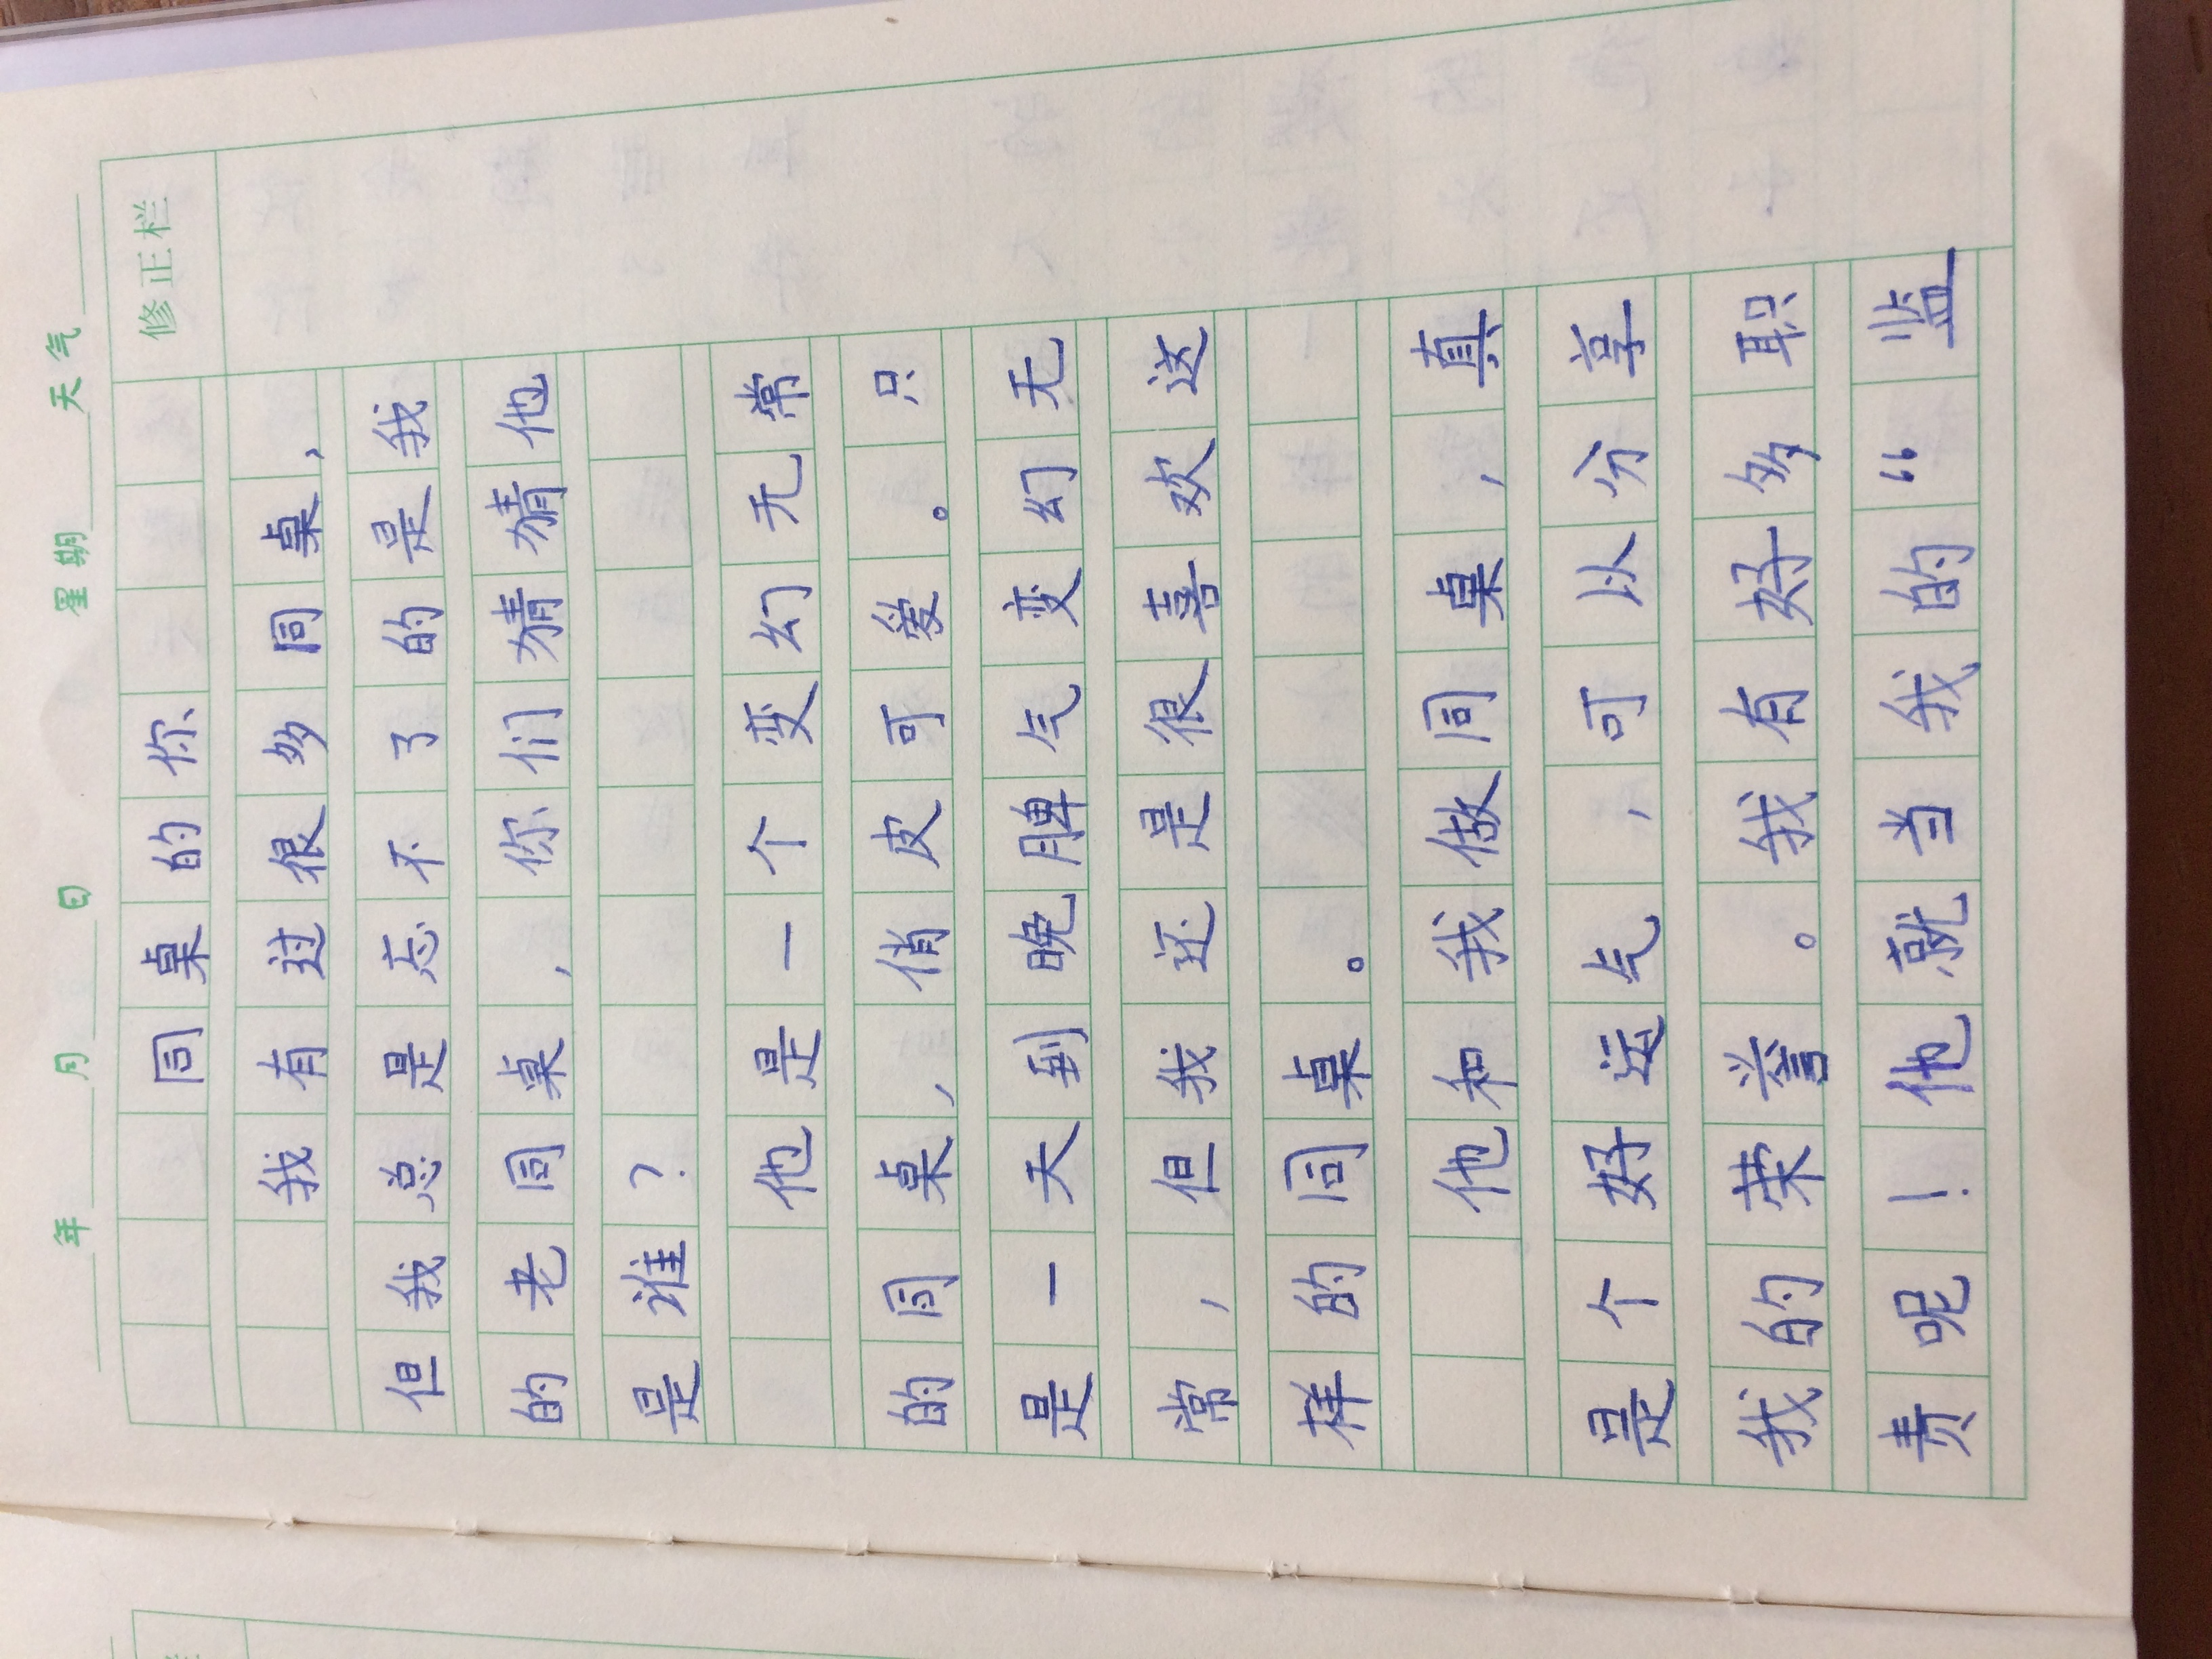 年 月 日 星期 天气
修正栏
同桌的你
我有过很多同桌，
但我总是忘不了的是我
的老同桌，你们猜猜他
是谁？
他是一个变幻无常
的同桌，俏皮可爱。只
是一天到晚脾气变幻无
常，但我还是很喜欢这
样的同桌。
他和我做同桌，真
是个好运气，可以分享
我的荣誉。我有好多职
责呢！他就当我的“监